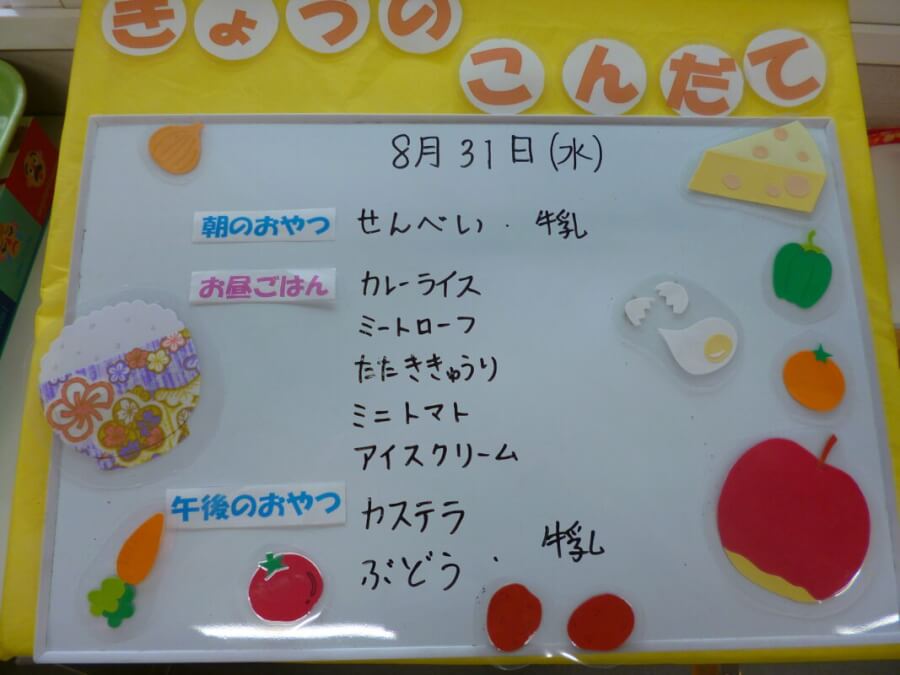 きょうの
こんだて
8月31日(水)
朝のおやつ せんべい・牛乳
お昼ごはん カレーライス
ミートローフ
たたききゅうり
ミニトマト
アイスクリーム
午後のおやつ カステラ
ぶどう・牛乳